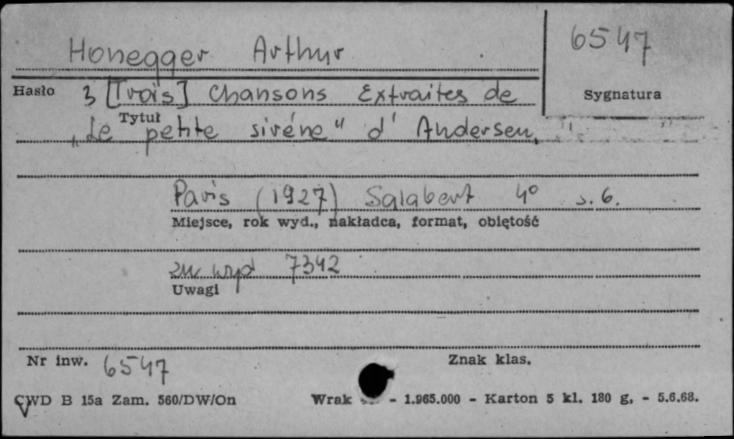 Honegger Arthur
6547
Hasło 3 [Trois] Chansons Extraites de
Sygnatura
Tytuł
„Le petite siréne" d' Andersen,
Paris (1927) Salabert 4° s. 6.
Miejsce, rok wyd., nakładca, format, objętość
zn wyd 7342
Uwagi
Nr inw. 6547
Znak klas.
CWD B 15a Zam. 560/DW/On
Wrak - 1.965.000 - Karton 5 kl. 180 g. - 5.6.68.